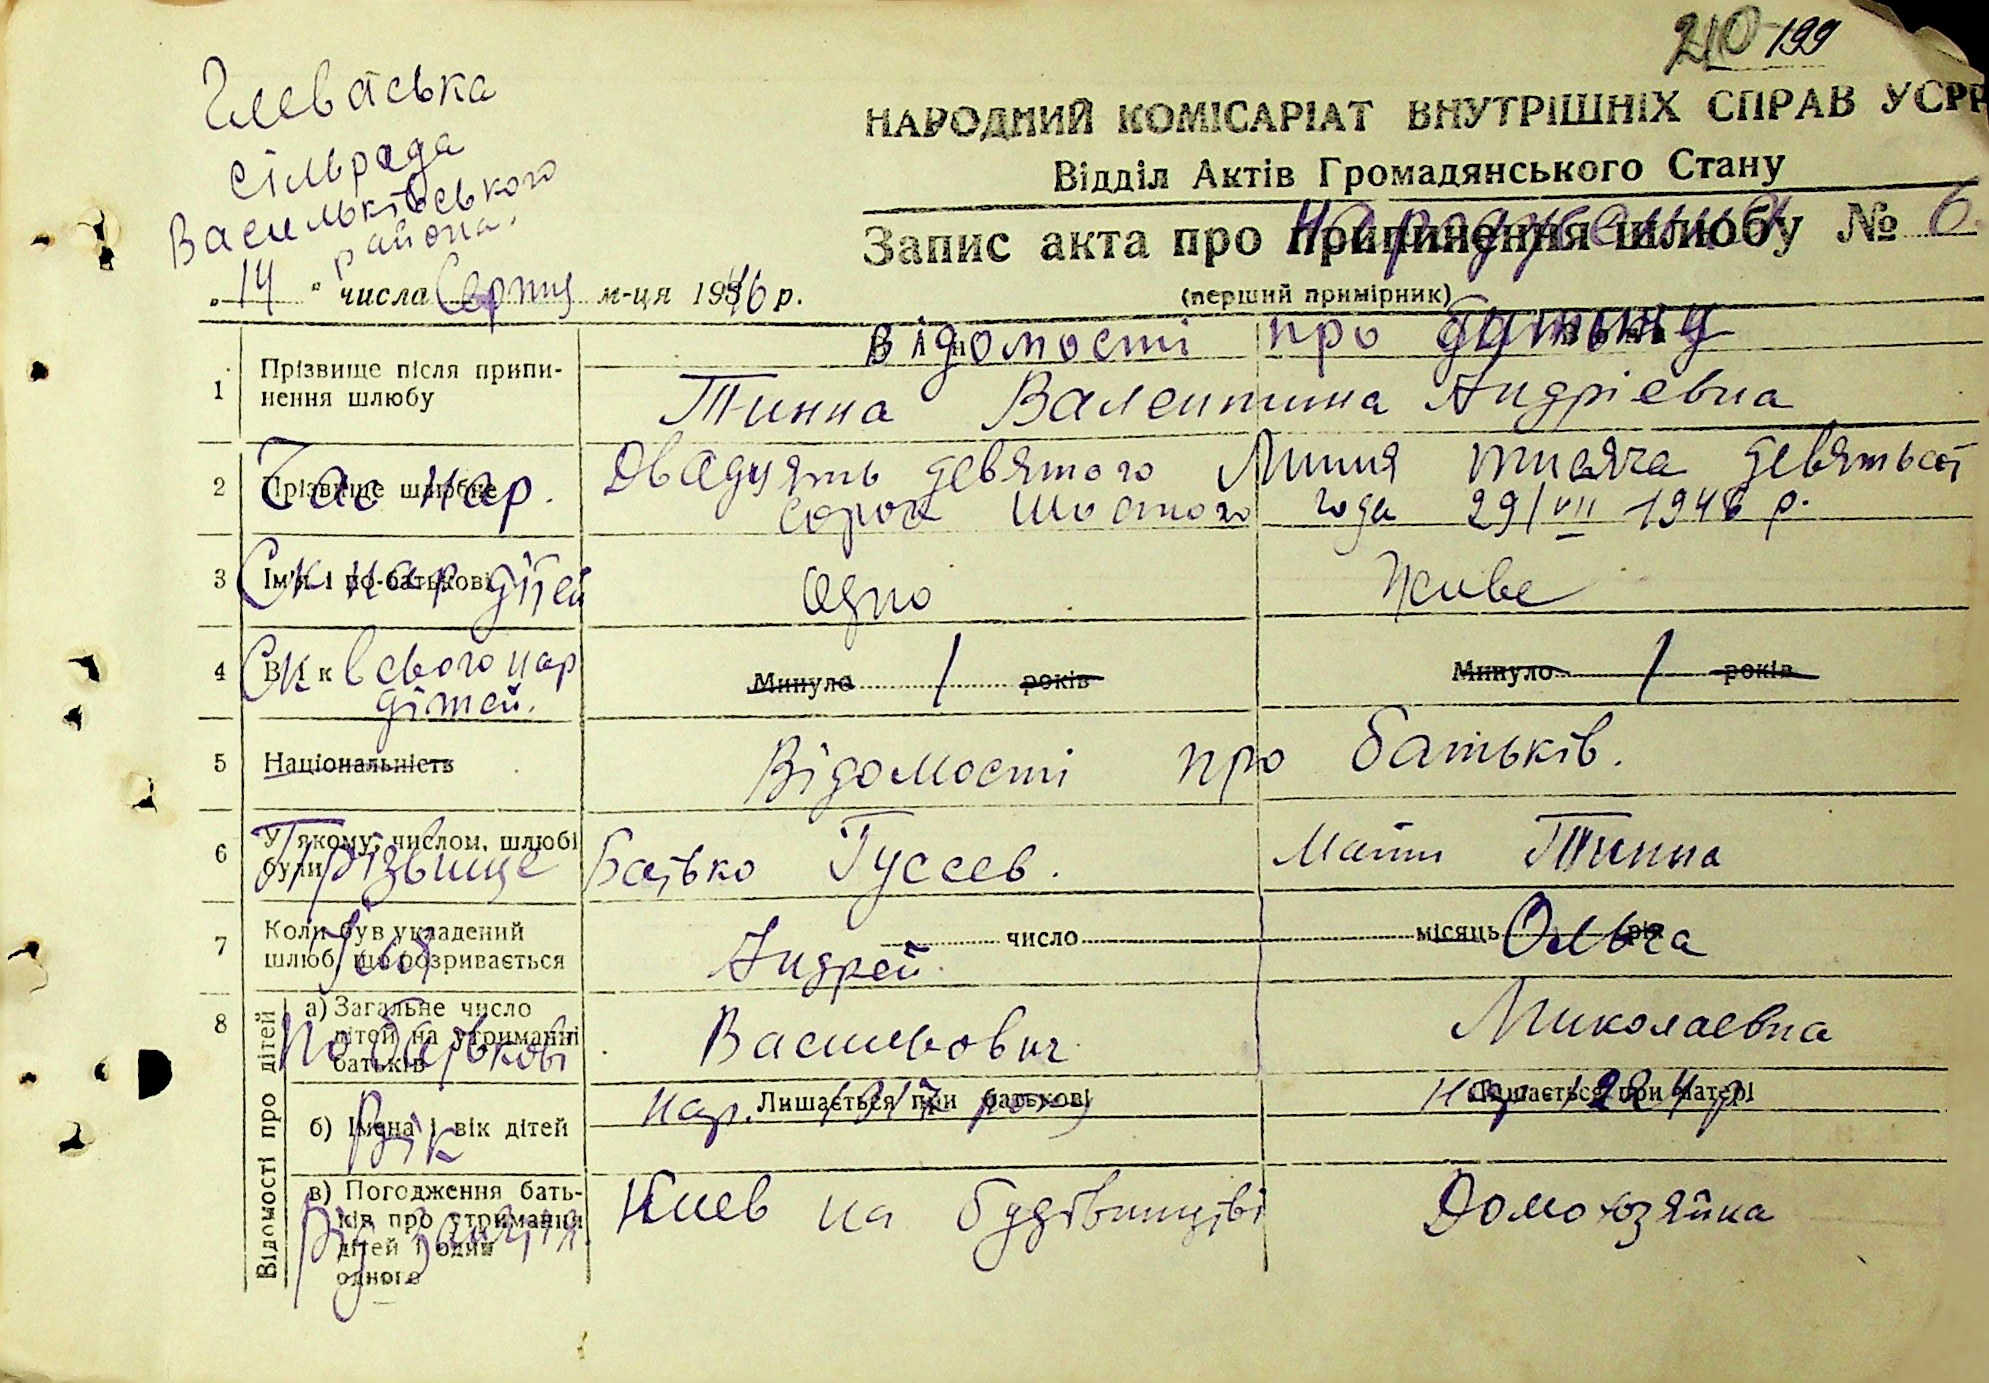 210 199
Глеваська
сільрада
Васильківського
района.
НАРОДНИЙ КОМІСАРІАТ ВНУТРІШНІХ СПРАВ УСРР
Відділ Актів Громадянського Стану
Запис акта про припинення шлюбу № 6.
народження
„ 14 " числа Серпня м-ця 1946 р.
(перший примірник)
Відомості про дитину
1 Прізвище після припи-
нення шлюбу
Тинна Валентина Андріевна
2 Прізвище шлюбне
Час нар.
Двадцять девятого Липня тисяча девятьсот
сорок шостого года 29/VII 1946 р.
3 Ім'я і по-батькові
Ск нар дітей
одно Живе
4 Вік
Ск всього нар
дітей.
Минуло / років Минуло / років
5 Національність
Відомості про батьків.
6 У якому, числом, шлюбі
були
Прізвище
Батько Гуссев. Мати Тинна
7 Коли був укладений
шлюб, що розривається
Імя
число місяць рік
Андрей Ольга
8 Відомості про дітей
а) Загальне число
дітей на утриманні
батьків
По батькові
Васильович Миколаевна
б) Імена і вік дітей
Вік
Лишається при батькові Лишається при матері
нар. 1917 року нар. 1924 р
в) Погодження бать-
ків про утримання
дітей і один
одного
Рід заняття
Киев на будівництві Домохозяйка